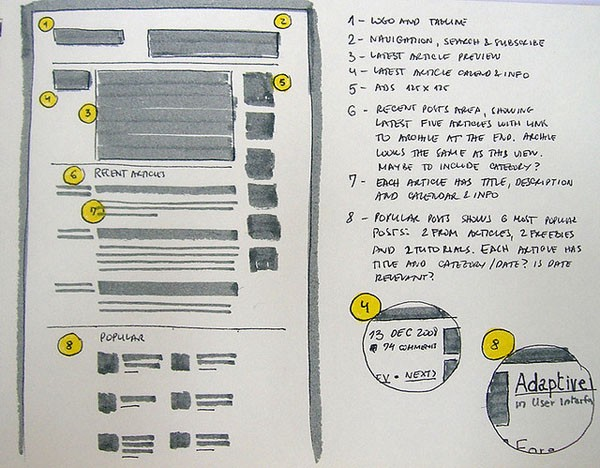 1
2
3
4
5
6 RECENT ARTICLES
7
8 POPULAR
1 - LOGO AND TAGLINE
2 - NAVIGATION, SEARCH & SUBSCRIBE
3 - LATEST ARTICLE PREVIEW
4 - LATEST ARTICLE CALEND & INFO
5 - ADS 125 x 125
6 - RECENT POSTS AREA, SHOWING
LATEST FIVE ARTICLES WITH LINK
TO ARCHIVE AT THE END. ARCHIVE
LOOKS THE SAME AS THIS VIEW.
MAYBE TO INCLUDE CATEGORY?
7 - EACH ARTICLE HAS TITLE, DESCRIPTION
AND CALENDAR & INFO
8 - POPULAR POSTS SHOWS 6 MOST POPULAR
POSTS: 2 FROM ARTICLES, 2 FREEBIES
AND 2 TUTORIALS. EACH ARTICLE HAS
TITLE AND CATEGORY/DATE? IS DATE
RELEVANT?
4
13 DEC 2008
74 COMMENTS
EV • NEXT>
8
Adaptive
in User Interfa